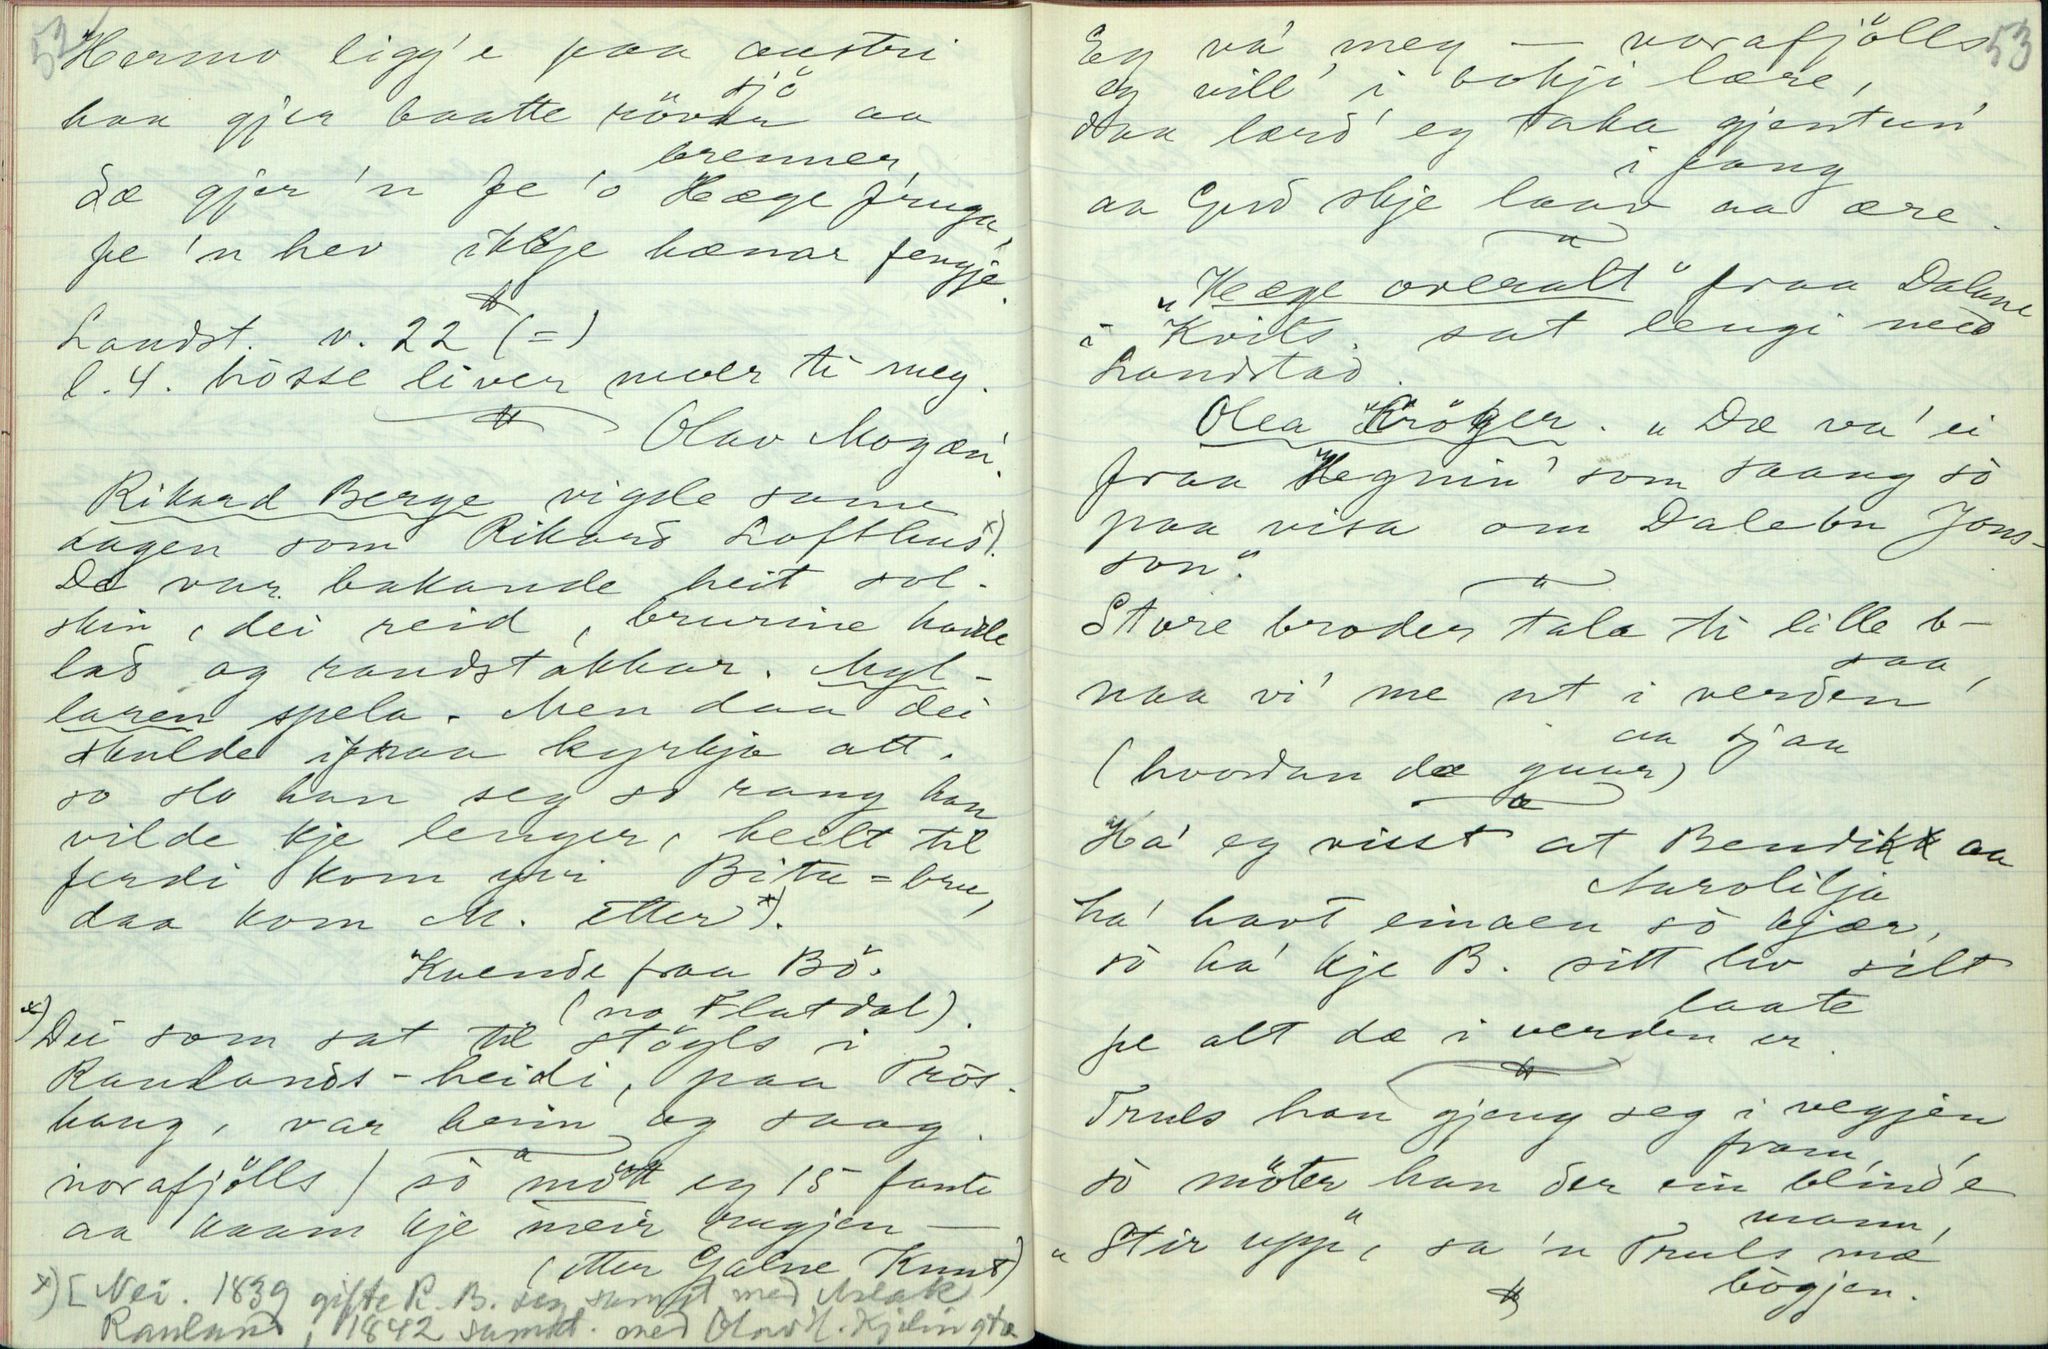 52
Hermo ligg'e paa austri sjö
han gjer baatte rövar aa brenner,
Dæ gjer 'n fe 'o Hæge fruga,
fe 'n hev ikkje hænar fengje.
Landst. v. 22 (=)
l. 4. hosse liver moer ti meg.
Olav Mogæn.
Rikard Berge vigsle same
dagen som Rikard Lofthus x).
De var bakande heit sol-
skin, dei reid, brurine hadde
lad og randstakkar. Myl-
laren spela. Men daa dei
skulde ifraa kyrkja att,
so slo han seg so rang han
vilde kje lenger, heilt til
ferdi kom yvi Bitu-bru,
daa kom M. etter x).
Kvende fraa Bö.
(no Flatdal).
x) Dei som sat til stöyls i
Raulands-heidi, paa Trös-
haug, var heim og saag.
norafjölls / so mött eg 15 fanta
aa kaam kje meir rugjen —
(etter Galne Knut)
x) [Nei. 1839 gifte R. B. seg samst med Aslak
Rauland, 1842 samst. med Olav H. Kjilingtv.
53
Eg va' meg — norafjölls
eg vill' i bokji lære,
daa lærd' eg taka gjentun' i fang
aa Gud skje laav aa ære.
"Hæge overalt" fraa Dalane
i Kvits. sat lengi med
Landstad.
Olea Kröger. "Dæ va' ei
fraa Hegnin' som saang so
paa visa om Dalebu Jons-
son".
Store broder tala ti lille b- saa,
naa vi' me ut i verden aa sjaa
(hvordan dæ gaar)
Ha' eg visst at Bendikk aa Aarolilja
ha' havt einaen so kjær,
so ha' kje B. sitt liv silt laate
fe alt dæ i verden er.
Truls han gjeng seg i vegjen fram,
so möter han der ein blind'e mann,
"Stir upp", sa 'n Truls mæ bogjen.